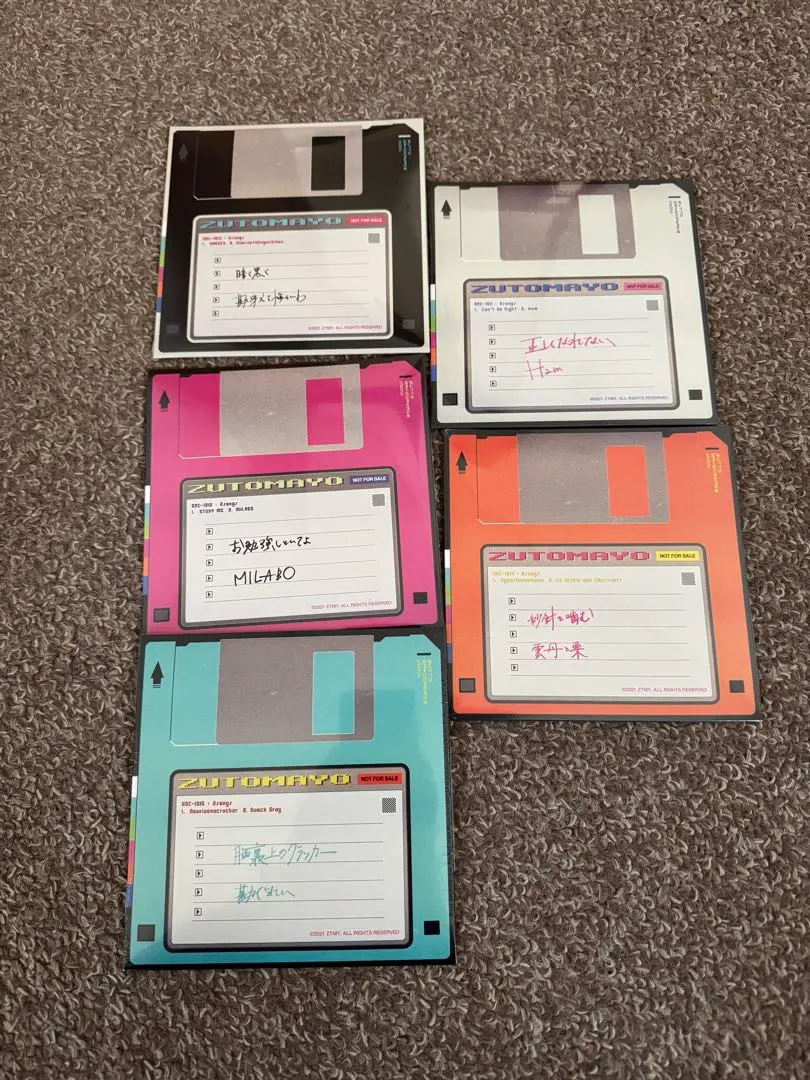 ZUTOMAYO NOT FOR SALE
暗く黒く
勘冴えて悔しいわ
©2021 ZTMY. ALL RIGHTS RESERVED
ZUTOMAYO NOT FOR SALE
1. Can't Be Right 2. Ham
正しくなれない
Ham
©2021 ZTMY. ALL RIGHTS RESERVED
ZUTOMAYO NOT FOR SALE
1. STUDY ME 2. MILABO
お勉強しといてよ
MILABO
©2021 ZTMY. ALL RIGHTS RESERVED
ZUTOMAYO NOT FOR SALE
秒針を噛む
雲丹と栗
©2021 ZTMY. ALL RIGHTS RESERVED
ZUTOMAYO NOT FOR SALE
脳裏上のクラッカー
勘ぐれい
©2021 ZTMY. ALL RIGHTS RESERVED